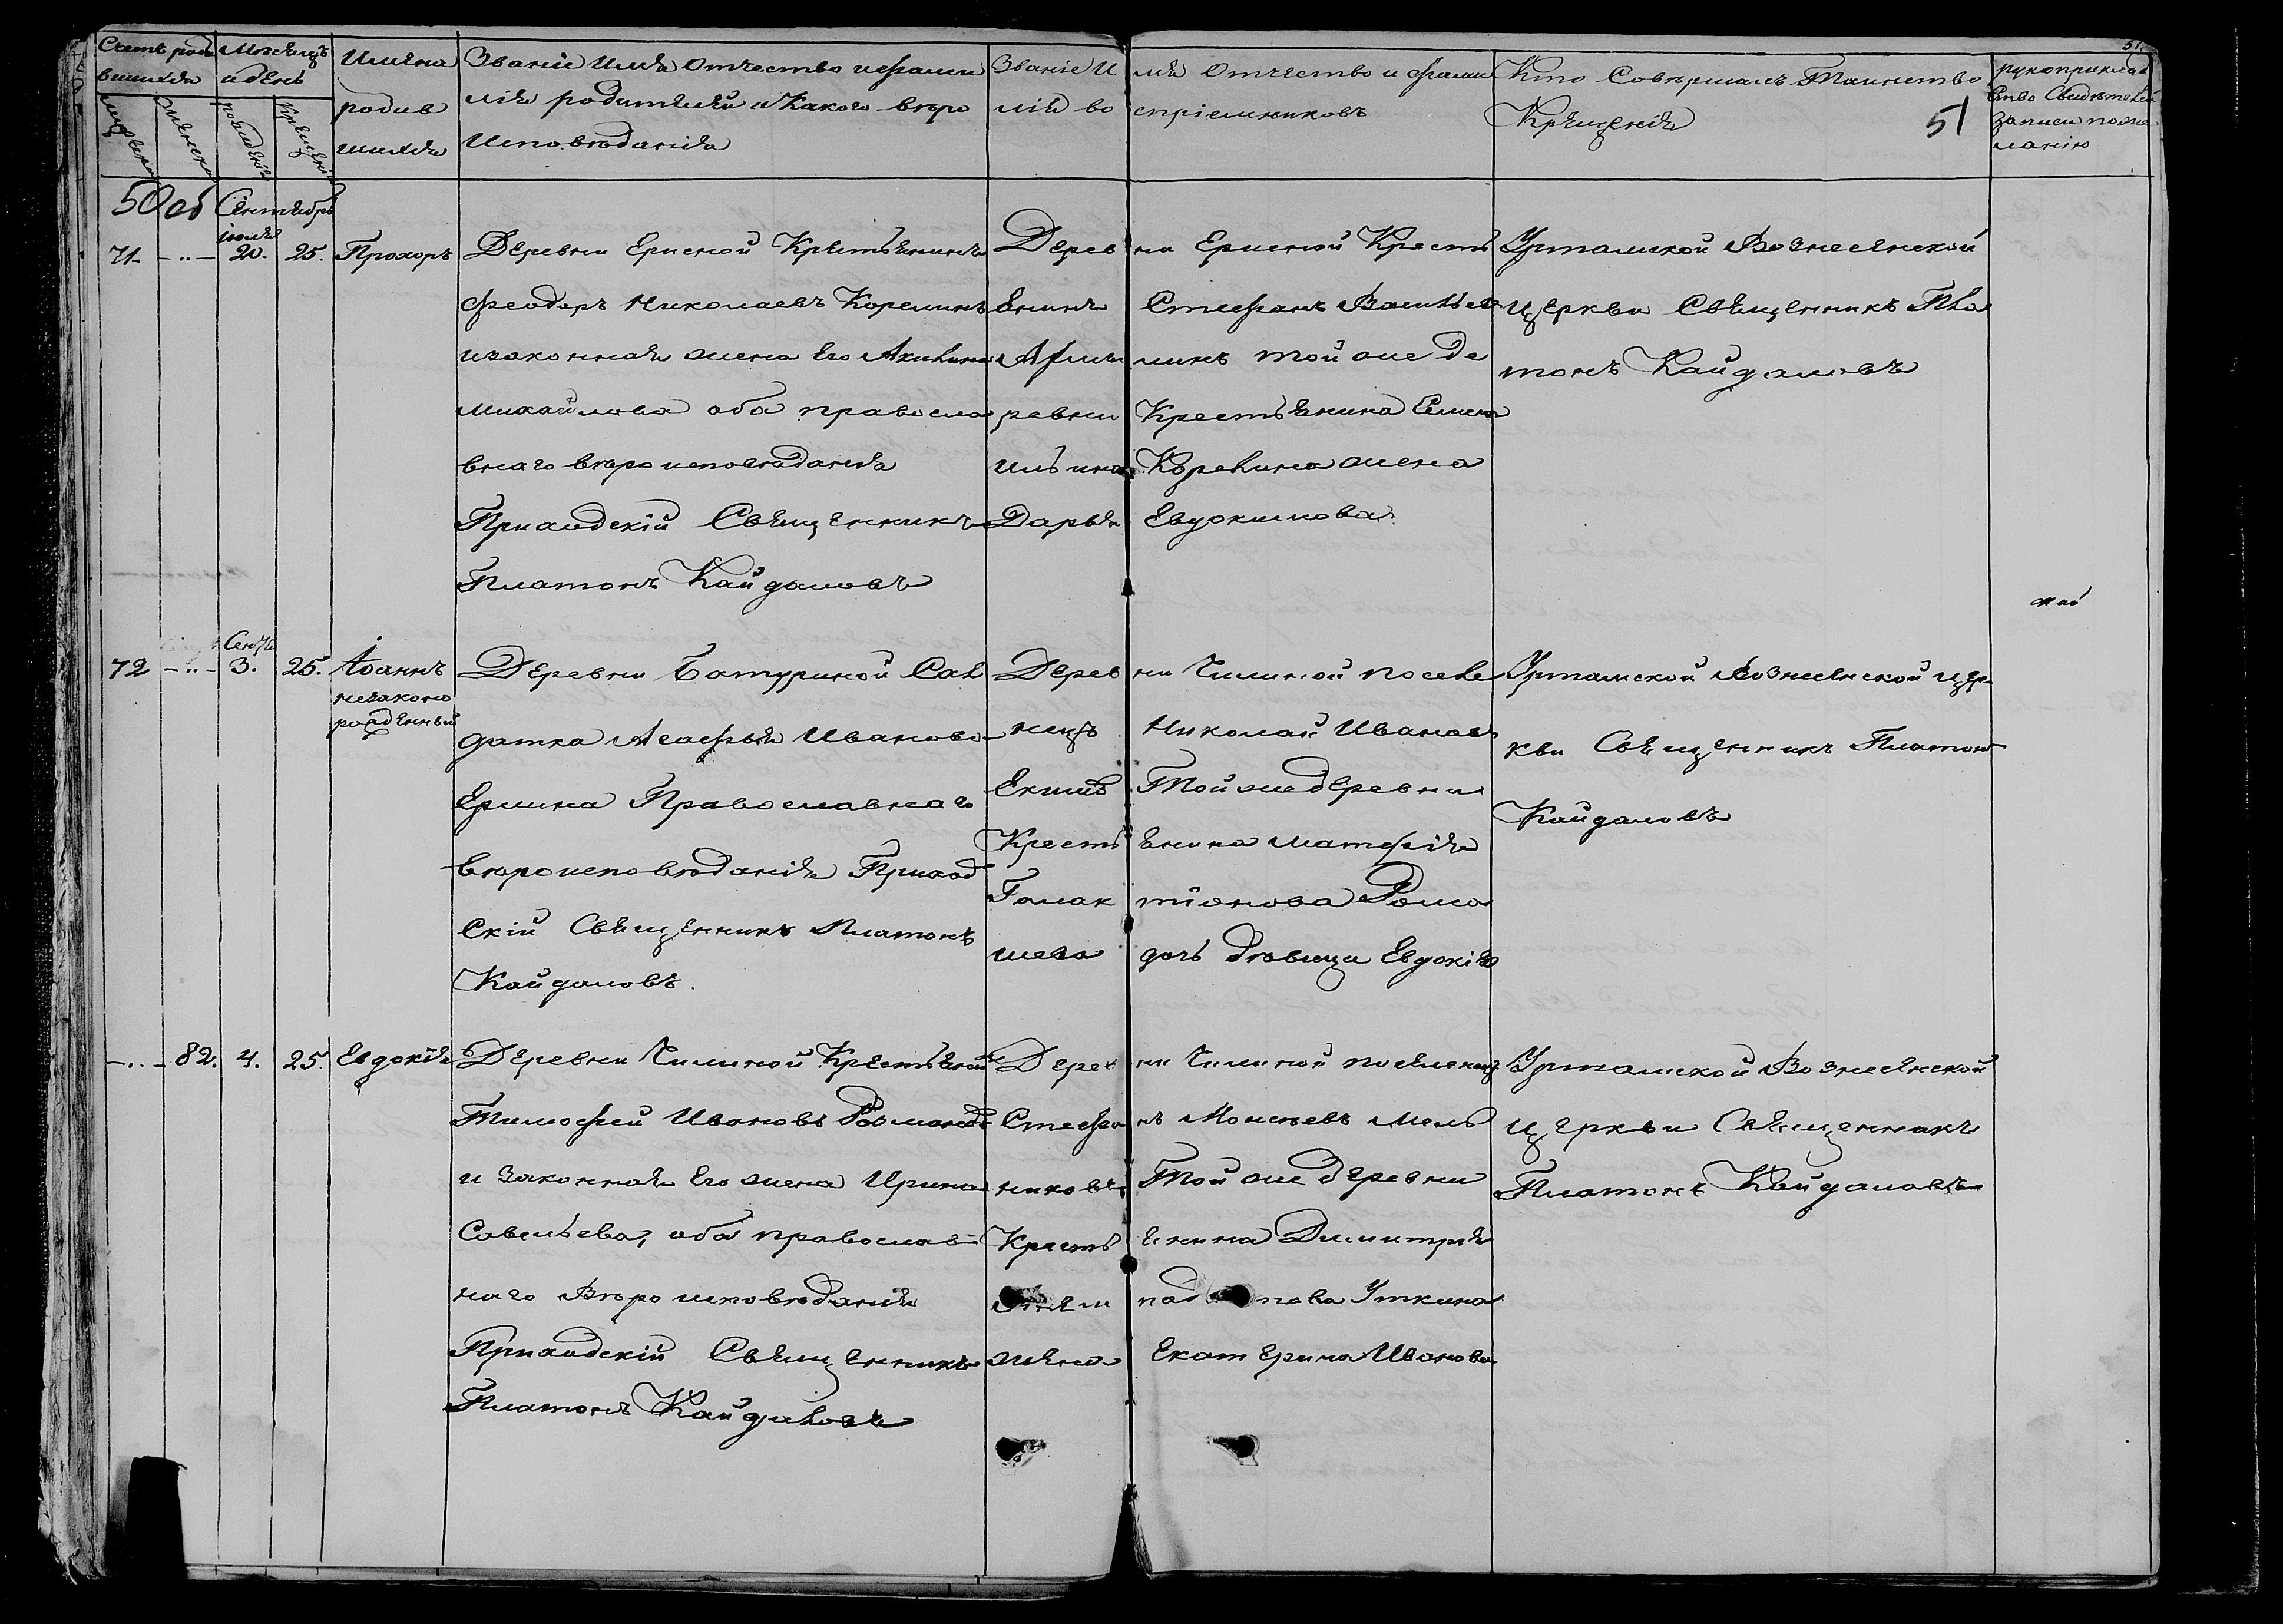 Счетъ роди
вшихся
мужеска
женска
Мѣсяцъ
и день
рожденія
крещенія
Имена
родив
шихся
Званіе Имя Отчество и фами
лія родителей и Какого вѣро
Исповѣданія
Званіе И мя Отчество и фами
лій во спріемниковъ
Кто Совершалъ Таинство
Крещенія
51
рукоприклад
ство Свидѣтелей
записи по же
ланію
50 об Сентябрь
іюля
71. - 20. 25. Прохоръ
Деревни Ермской Крестьянинъ
Феодоръ Николаевъ Корелинъ
и законная жена Его Акилина
Михайлова оба правосла
внаго вѣроисповѣданія
Приходскій Священникъ
Платонъ Кайдаловъ
Дерев ни Ермской Кресть
янинъ Стефанъ Василье
той же де
ревни Крестьянина Семена
Корелина жена
Дарья Евдокимова
Уртамской Вознесенской
церкви Священникъ Пла
тонъ Кайдаловъ
72 - Сент. 3. 25. Іоаннъ
незаконо
рожденный
Деревни Батуриной Сол
датка Агафья Иванова
Ермина Православнаго
вѣроисповѣданія Приход
скій Священникъ Платонъ
Кайдаловъ.
Дерев ни Чилиной поселе
нецъ Николай Ивановъ
Екимъ Той же деревни
Кресть янина
дочь дѣвица Евдокія
Уртамской Вознесенской цер
кви Священникъ Платонъ
Кайдаловъ
- 82. 4. 25. Евдокія
Деревни Чилиной Крестьянинъ
Тимофей Ивановъ
и законная Его жена Ирина
Савельева, оба православ
наго Вѣроисповѣданія
Приходскій Священникъ
Платонъ Кайдаловъ
Дерев ни Чилиной поселенец
Стефа нъ Моисеевъ Мель
никовъ Той же деревни
Кресть янина Димитрія
Уткина
жена Екатерина Иванова
Уртамской Вознесенской
церкви Священникъ
Платонъ Кайдаловъ